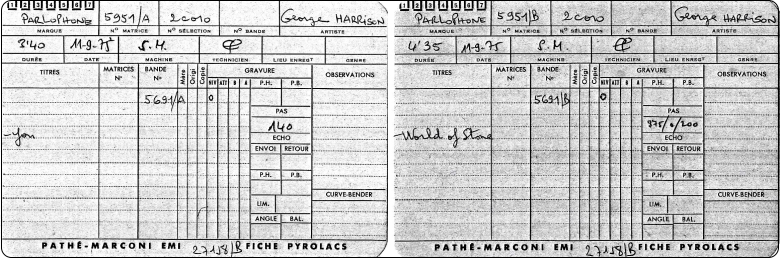 1 2 3 4 5 6 7
PARLOPHONE 5951/A 2C010 George HARRISON
MARQUE N° MATRICE N° SÉLECTION N° BANDE ARTISTE
3'40 11-9-75 S.M.
DURÉE DATE MACHINE TECHNICIEN LIEU ENREGT
TITRES MATRICES N° BANDE N° Mère Origi Copie GRAVURE OBSERVATIONS
NIV ATT B A P.H. P.B.
5691/A 0
PAS
140
-You
ECHO
ENVOI RETOUR
P.H. P.B.
CURVE-BENDER
LIM.
ANGLE BAL.
PATHÉ-MARCONI EMI 27158/B FICHE PYROLACS
1 2 3 4 5 6 7
PARLOPHONE 5951/B 2C010 George HARRISON
MARQUE N° MATRICE N° SÉLECTION N° BANDE ARTISTE
4'35 11-9-75 S.M.
DURÉE DATE MACHINE TECHNICIEN LIEU ENREGT
TITRES MATRICES N° BANDE N° Mère Origi Copie GRAVURE OBSERVATIONS
NIV ATT B A P.H. P.B.
5691/B 0
PAS
-World of Stone
ECHO
ENVOI RETOUR
P.H. P.B.
CURVE-BENDER
LIM.
ANGLE BAL.
PATHÉ-MARCONI EMI 27158/B FICHE PYROLACS